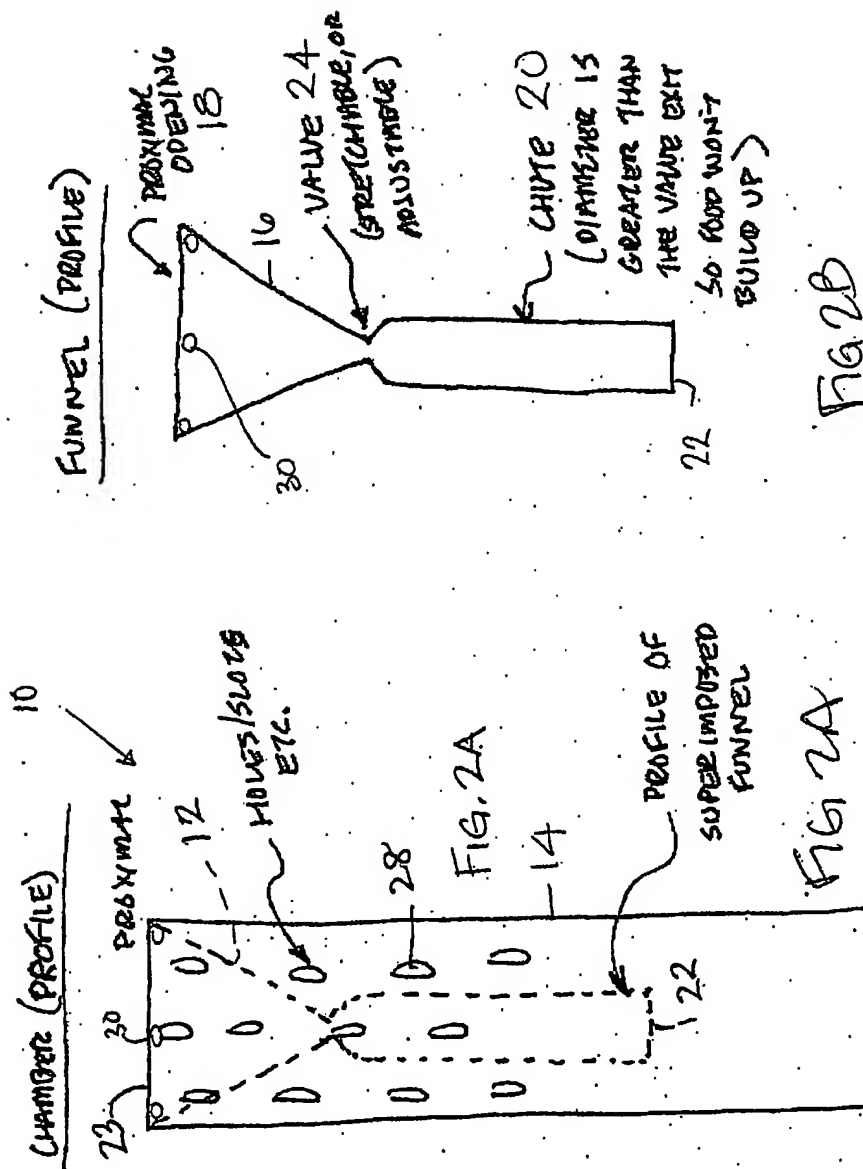 CHAMBER (PROFILE)
10
PROXIMAL
30
23
12
HOLES/SLOTS
ETC.
FIG. 2A
28
14
PROFILE OF
SUPERIMPOSED
FUNNEL
22
FIG 2A
FUNNEL (PROFILE)
PROXIMAL
OPENING
18
16
30
VALVE 24
(STRETCHABLE, OR
ADJUSTABLE)
CHUTE 20
(DIAMETER IS
GREATER THAN
THE VALVE EXIT
SO FOOD WON'T
BUILD UP)
22
FIG. 2B